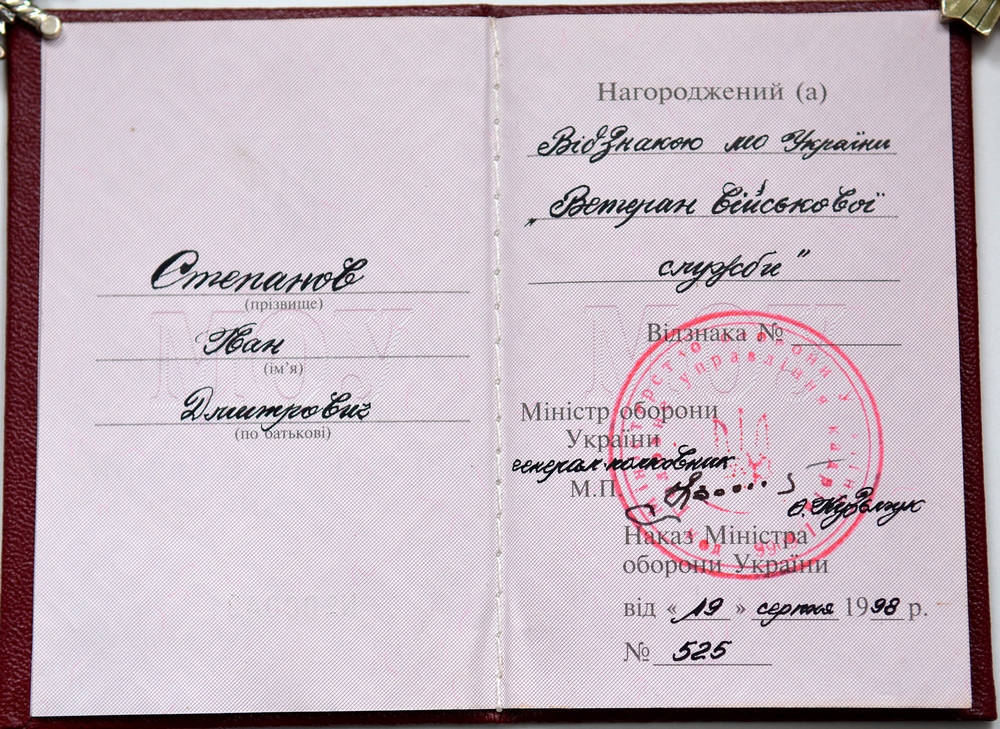 Степанов
(прізвище)
Іван
(ім’я)
Дмитрович
(по батькові)
МОУ
Нагороджений (а)
Відзнакою МО України
„Ветеран військової
служби"
МОУ
Відзнака №
Міністр оборони
України
генерал-полковник
М.П.
О. Кузьмук
Наказ Міністра
оборони України
від « 19 » серпня 1998 р.
№ 525